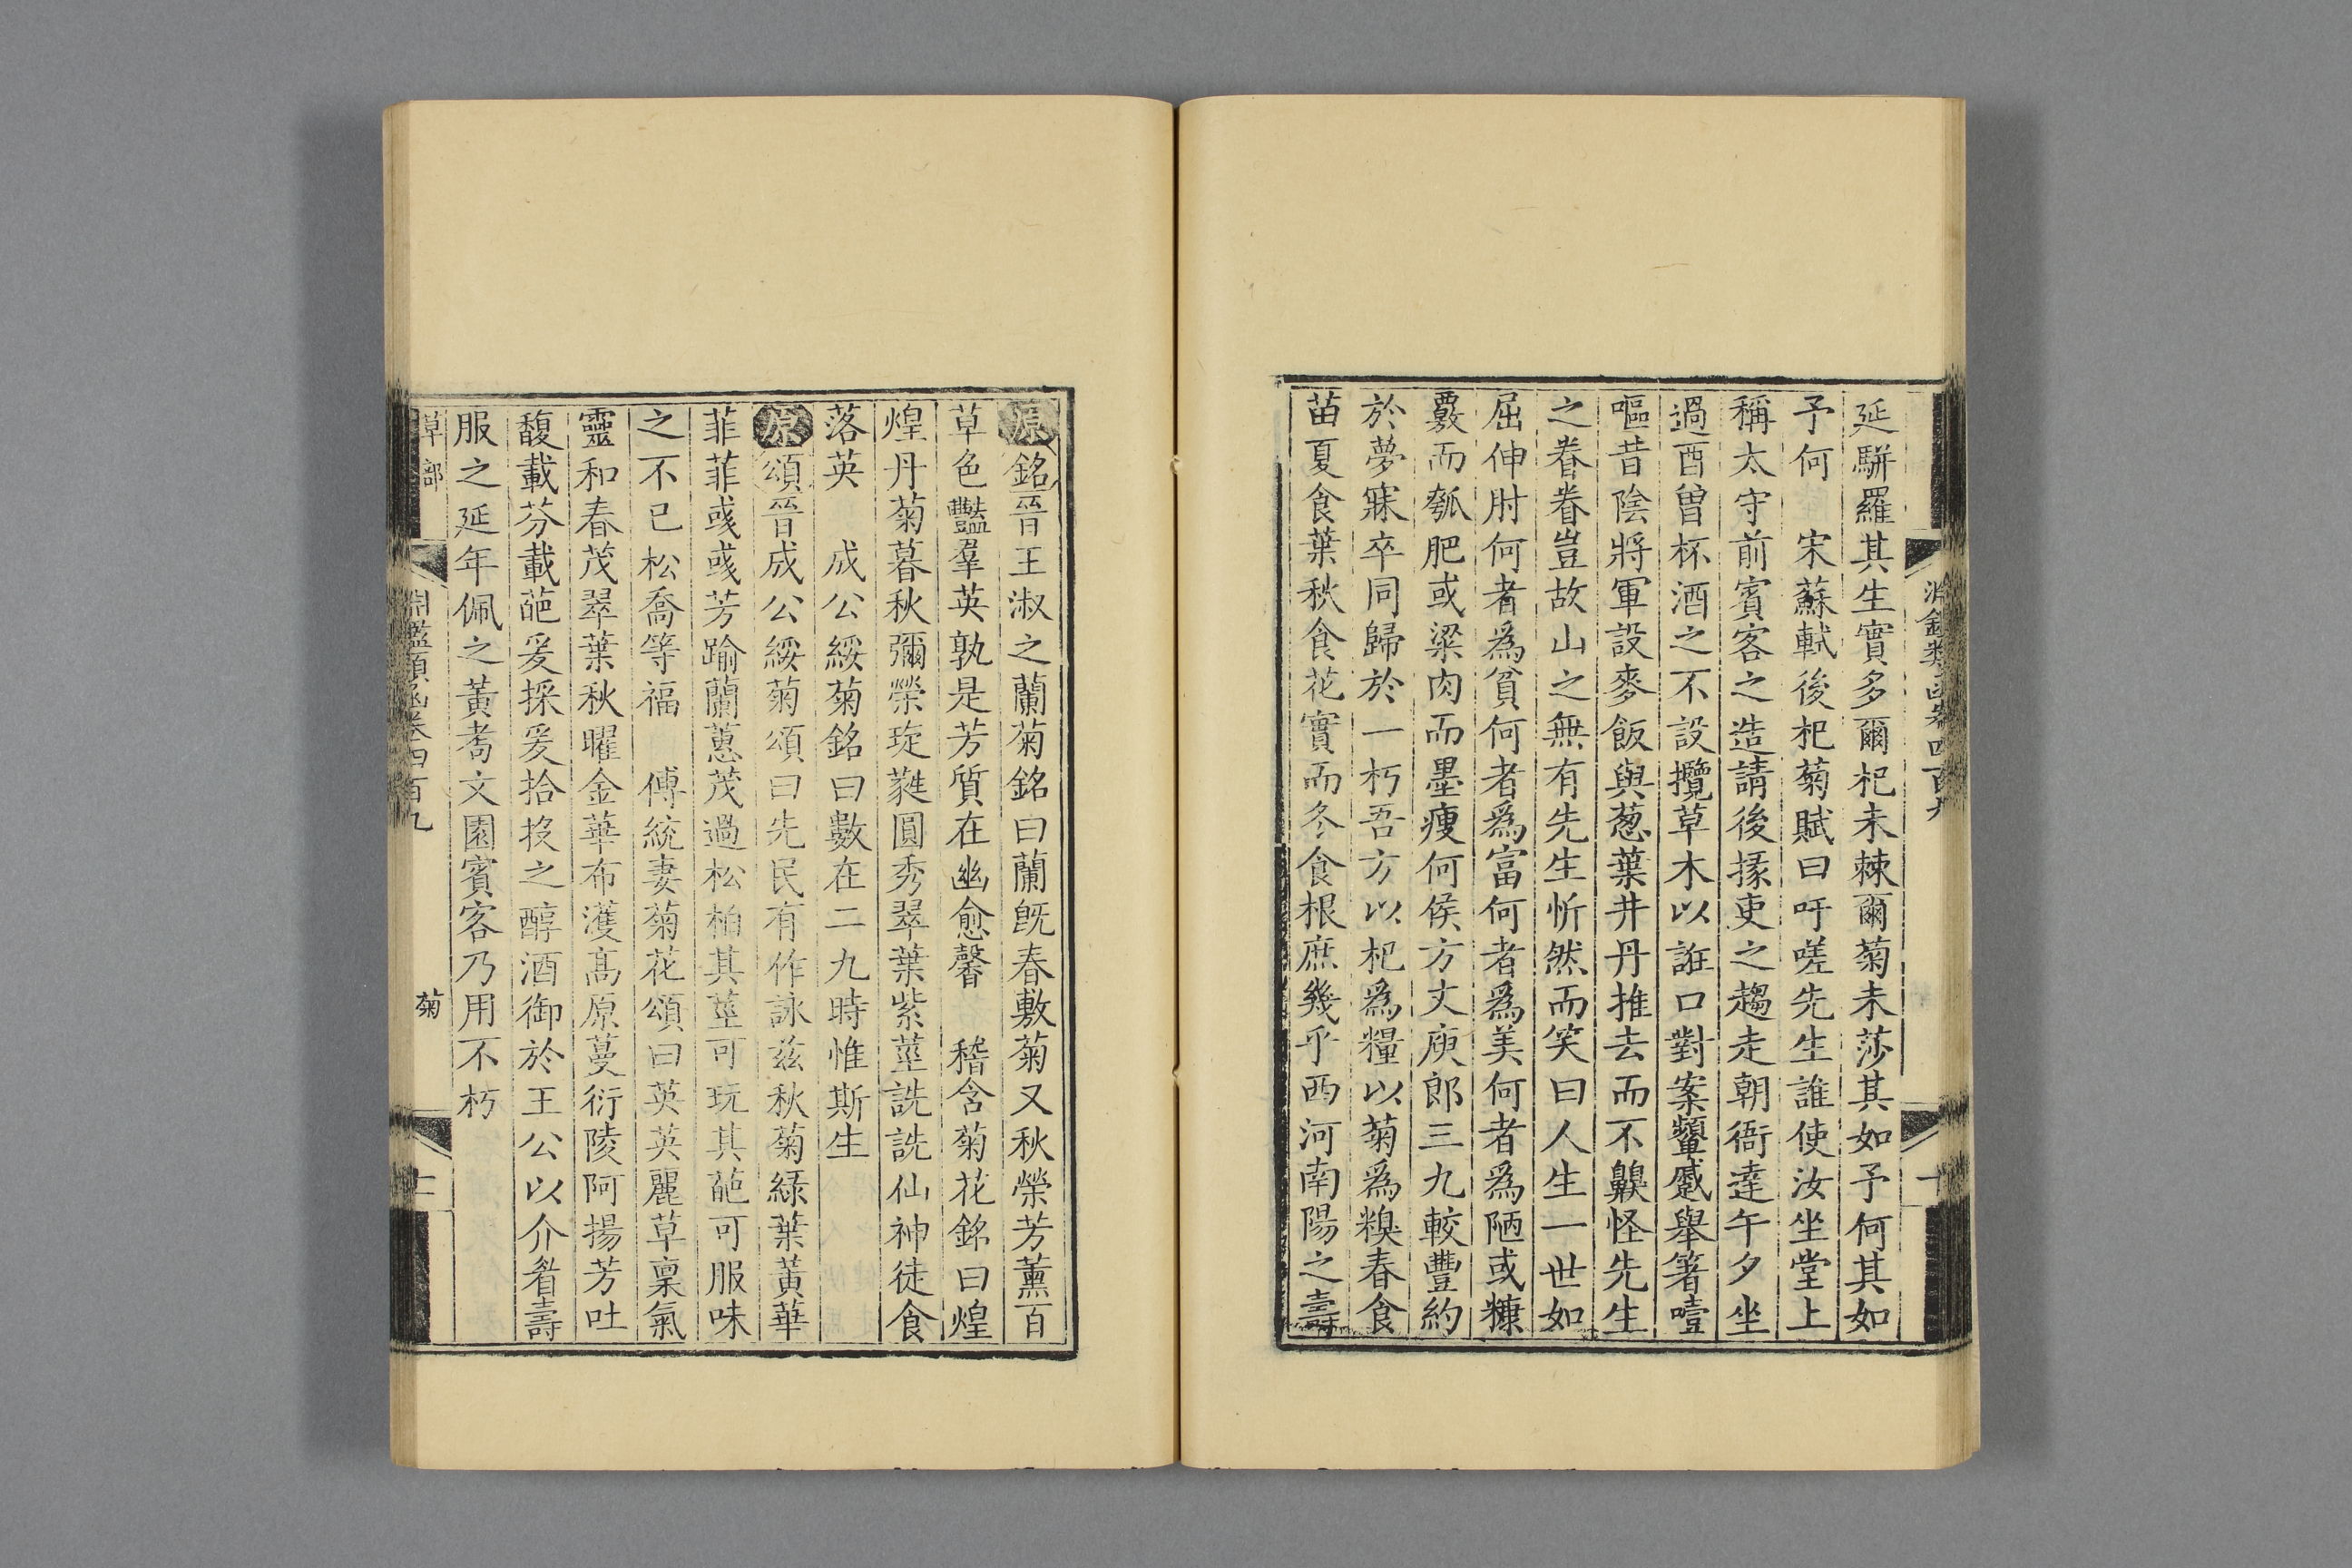 淵鑑類函卷四百九
十
延駢羅其生實多爾杞未棘爾菊未莎其如予何其如
予何　宋蘇軾後杞菊賦曰吁嗟先生誰使汝坐堂上
稱太守前賓客之造請後掾吏之趨走朝衙達午夕坐
過酉曾杯酒之不設攬草木以誑口對案顰蹙舉箸噎
嘔昔陰將軍設麥飯與葱葉井丹推去而不齅怪先生
之眷眷豈故山之無有先生忻然而笑曰人生一世如
屈伸肘何者爲貧何者爲富何者爲美何者爲陋或糠
覈而瓠肥或粱肉而墨瘦何侯方丈庾郎三九較豐約
於夢寐卒同歸於一朽吾方以杞爲糧以菊爲糗春食
苗夏食葉秋食花實而冬食根庶幾乎西河南陽之壽
原銘晉王淑之蘭菊銘曰蘭旣春敷菊又秋榮芳薰百
草色豔羣英孰是芳質在幽愈馨　嵇含菊花銘曰煌
煌丹菊暮秋彌榮琁蕤圓秀翠葉紫莖詵詵仙神徒食
落英　成公綏菊銘曰數在二九時惟斯生
原頌晉成公綏菊頌曰先民有作詠茲秋菊綠葉黃華
菲菲彧彧芳踰蘭蕙茂過松柏其莖可玩其葩可服味
之不已松喬等福　傅統妻菊花頌曰英英麗草稟氣
靈和春茂翠葉秋曜金華布濩高原蔓衍陵阿揚芳吐
馥載芬載葩爰採爰拾投之醇酒御於王公以介眉壽
服之延年佩之黃耇文園賓客乃用不朽
草部
淵鑑類函卷四百九
菊